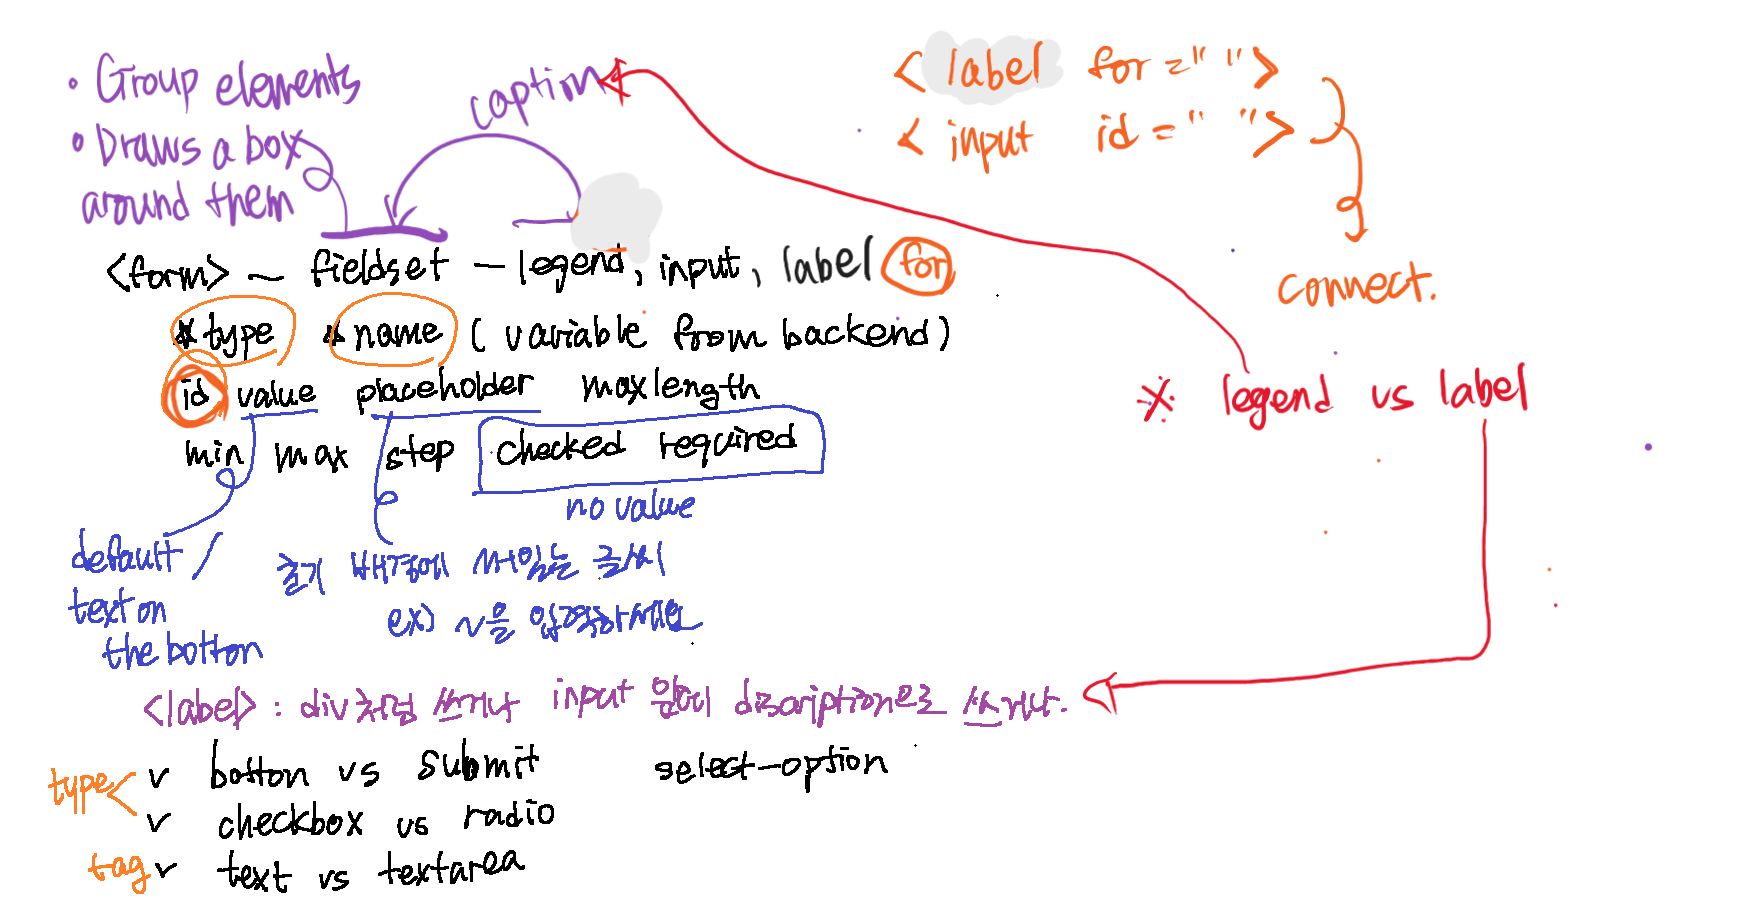 • Group elements
• Draws a box
around them
caption
< label for = " ">
< input id = " ">
connect.
<form> ~ fieldset - legend, input, label for
*type *name ( variable from backend )
id value placeholder maxlength
min max step checked required
no value
default /
text on
the botton
초기 배경에 써있는 글씨
ex) ~을 입력하세요
※ legend vs label
<label> : div처럼 쓰거나 input 앞에 discription으로 쓰거나.
type < v botton vs submit select-option
v checkbox vs radio
tag v text vs textarea